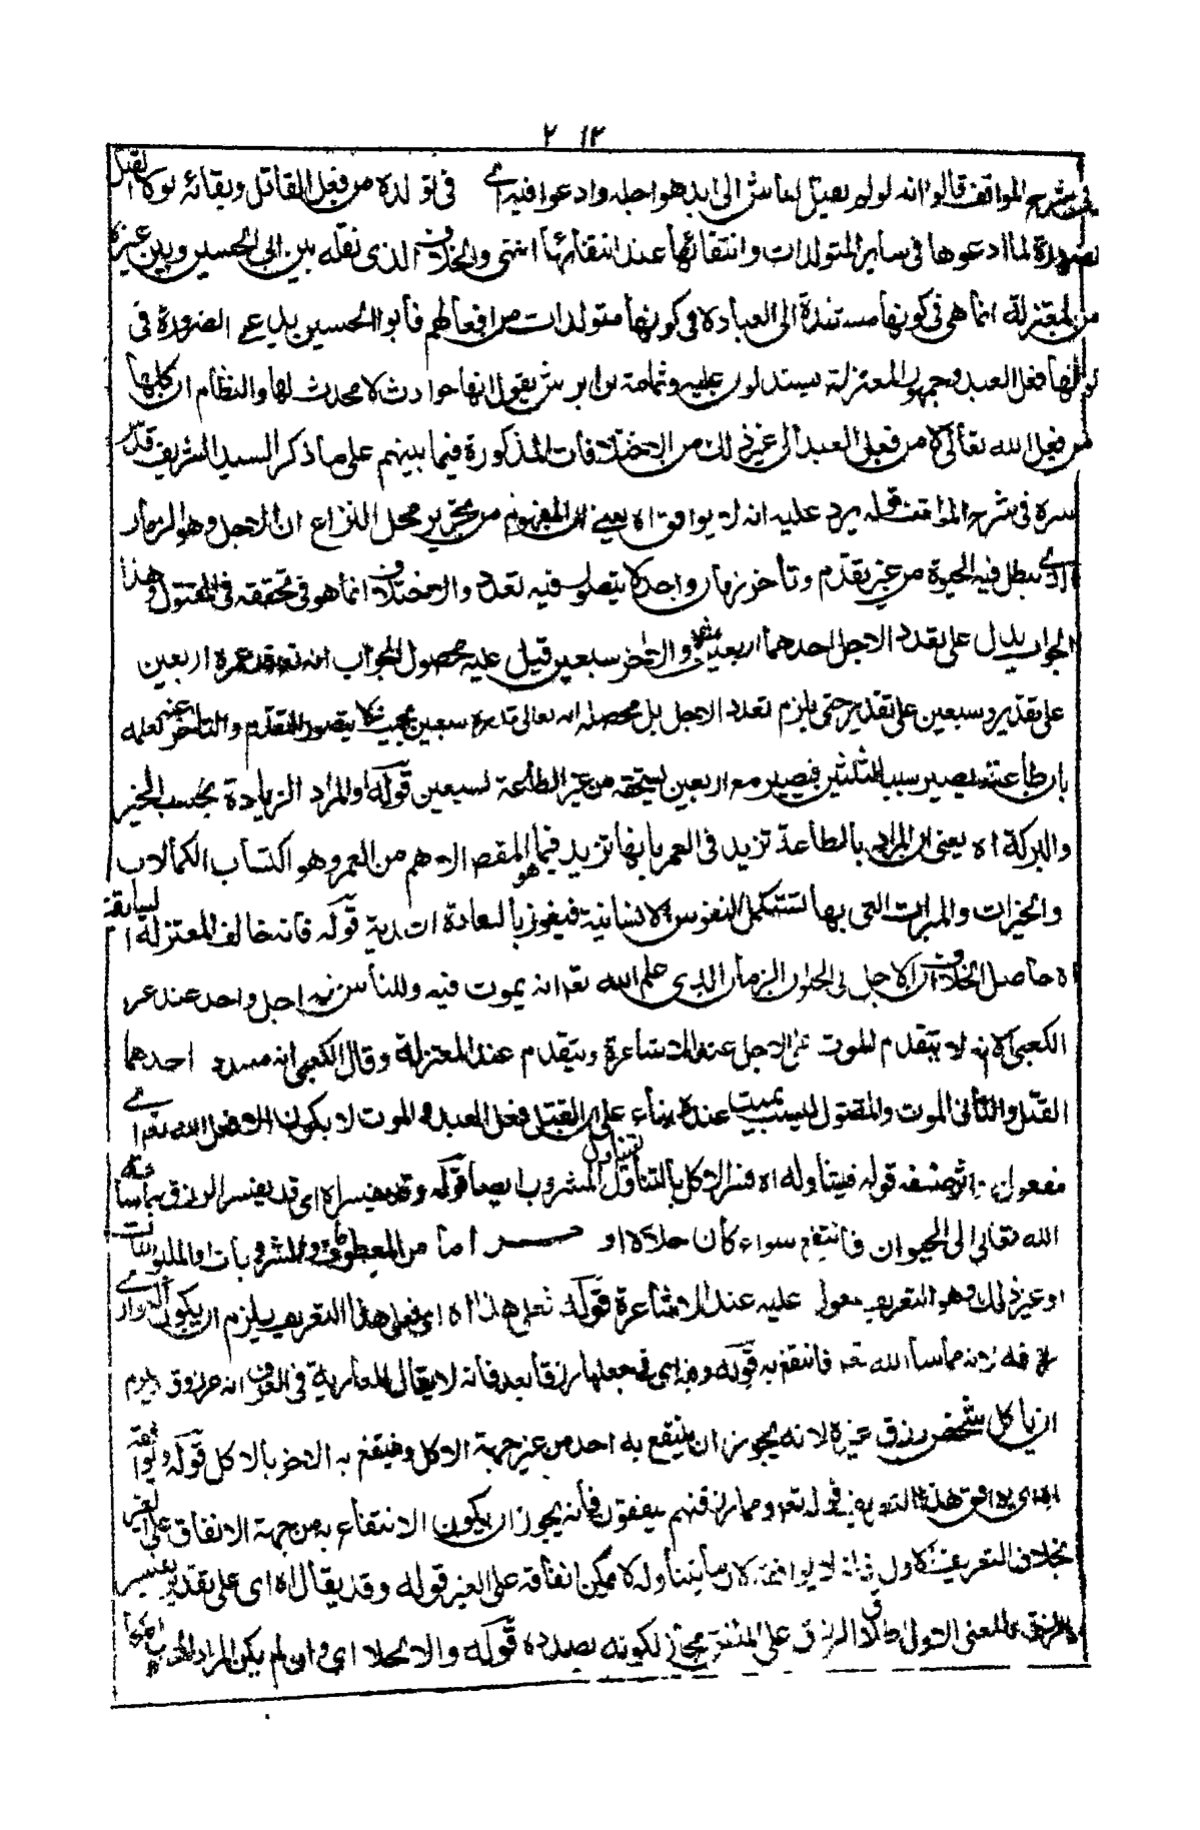 ٢١٢
في شرح المواقف قالوا انه لو لم يقتل لعاش الى ابد هو اجله وادعوا فيه اى في تولده من فعل القاتل وبقائه لولا القتل
الضرورة لما ادعوها في ساير المتولدات وانتفائها عند انتفائها انتهى والخلاف الذى نقله بين ابى الحسين وبين غيره
من المعتزلة انما هى في كونها مستندة الى العباد لا في كونها متولدات من افعالهم فأبو الحسين يدعى الضرورة في
انها فعل العبد وجمهور المعتزلة يستدلون عليه وثمامة بن اشرس يقول انها حوادث لا محدث لها والنظام ان كلها
من فعل الله تعالى لا من فعل العبد الى غير ذلك من الاختلافات المذكورة فيما بينهم على ما ذكر السيد الشريف قدس
سره في شرح المواقف قوله يرد عليه انه لا يوافق اه يعنى ان المفهوم من تحرير محل النزاع ان الاجل وهو الزمان
الذى يبطل فيه الحيوة من غير تقدم وتأخر زمان واحد لا يتصور فيه تعدد والاختلاف انما هو في تحققه في المقتول وهذا
الجواب يدل على تعدد الاجل احدهما اربعين والاخر سبعين قيل عليه محصول الجواب انه تعالى قدر عمره اربعين
على تقدير وسبعين على تقدير حتى يلزم تعدد الاجل بل محصله انه تعالى قدره سبعين بحيث لا يتصور التقدم والتأخر عنه لعلمه
بان طاعته يصير سببا لثلثين فيصير مع اربعين يستحقه من غير الطاعة سبعين قوله والمراد الزيادة بحسب الخير
والبركة اه يعنى ان المراد بالطاعة تزيد في العمر بانها تزيد فيما هو المقصد الاهم من العمر وهو اكتساب الكمالات
والخيرات والمبرات التى بها تستكمل النفوس الانسانية فيفوز بالسعادة قوله فانه خالف المعتزلة السابقة
اه حاصل الخلاف ان الاجل في الحيوان الزمان الذى علم الله تعالى انه يموت فيه وللناس فيه اجل واحد عند غير
الكعبى الا انه لا يتقدم الموت على الاجل عند الاشاعرة ويتقدم عند المعتزلة وقال الكعبى انه احدهما
القتل والثانى الموت والمقتول ليس بميت عنده بناء على ان القتل فعل العبد والموت لا يكون الا فعل الله تعالى اى
مفعوله قوله فيتناوله اه فسر الاكل بالتناول ليتناول المشروب ايضا قوله وقد يفسر اه اى قد يفسر الرزق بما ساقه
الله تعالى الى الحيوان فانتفع سواء كان حلالا او حراما من المطعومات والمشروبات او الملبوسات
او غير ذلك وهو التعريف معول عليه عند الاشاعرة قوله فعلى هذا اه اى فعلى هذا التعريف يلزم ان يكون
ساقه الله تعالى فانتفع به قوله وفى جعلها رزقا بعد فانه لا يقال العارية في العرف انه مرزوق
ان يأكل شخص رزق غيره لانه يجوز ان ينتفع به احد من غير جهة الاكل وينتفع به الاخر بالاكل قوله ويوافقه
هذا التعريف قوله تعالى ومما رزقنهم ينفقون فانه يجوز ان يكون الانتفاع به من جهة الانفاق على الغير
بخلاف التعريف الاول فانه لا يوافقه لان ما يتناوله لا يمكن انفاقه على الغير قوله وقد يقال اه اى على تقدير تفسير
الرزق بالمعنى الاول اطلاق الرزق على المنفق مجاز لكونه بصدده قوله والا لخلا اى وان لم يكن المراد